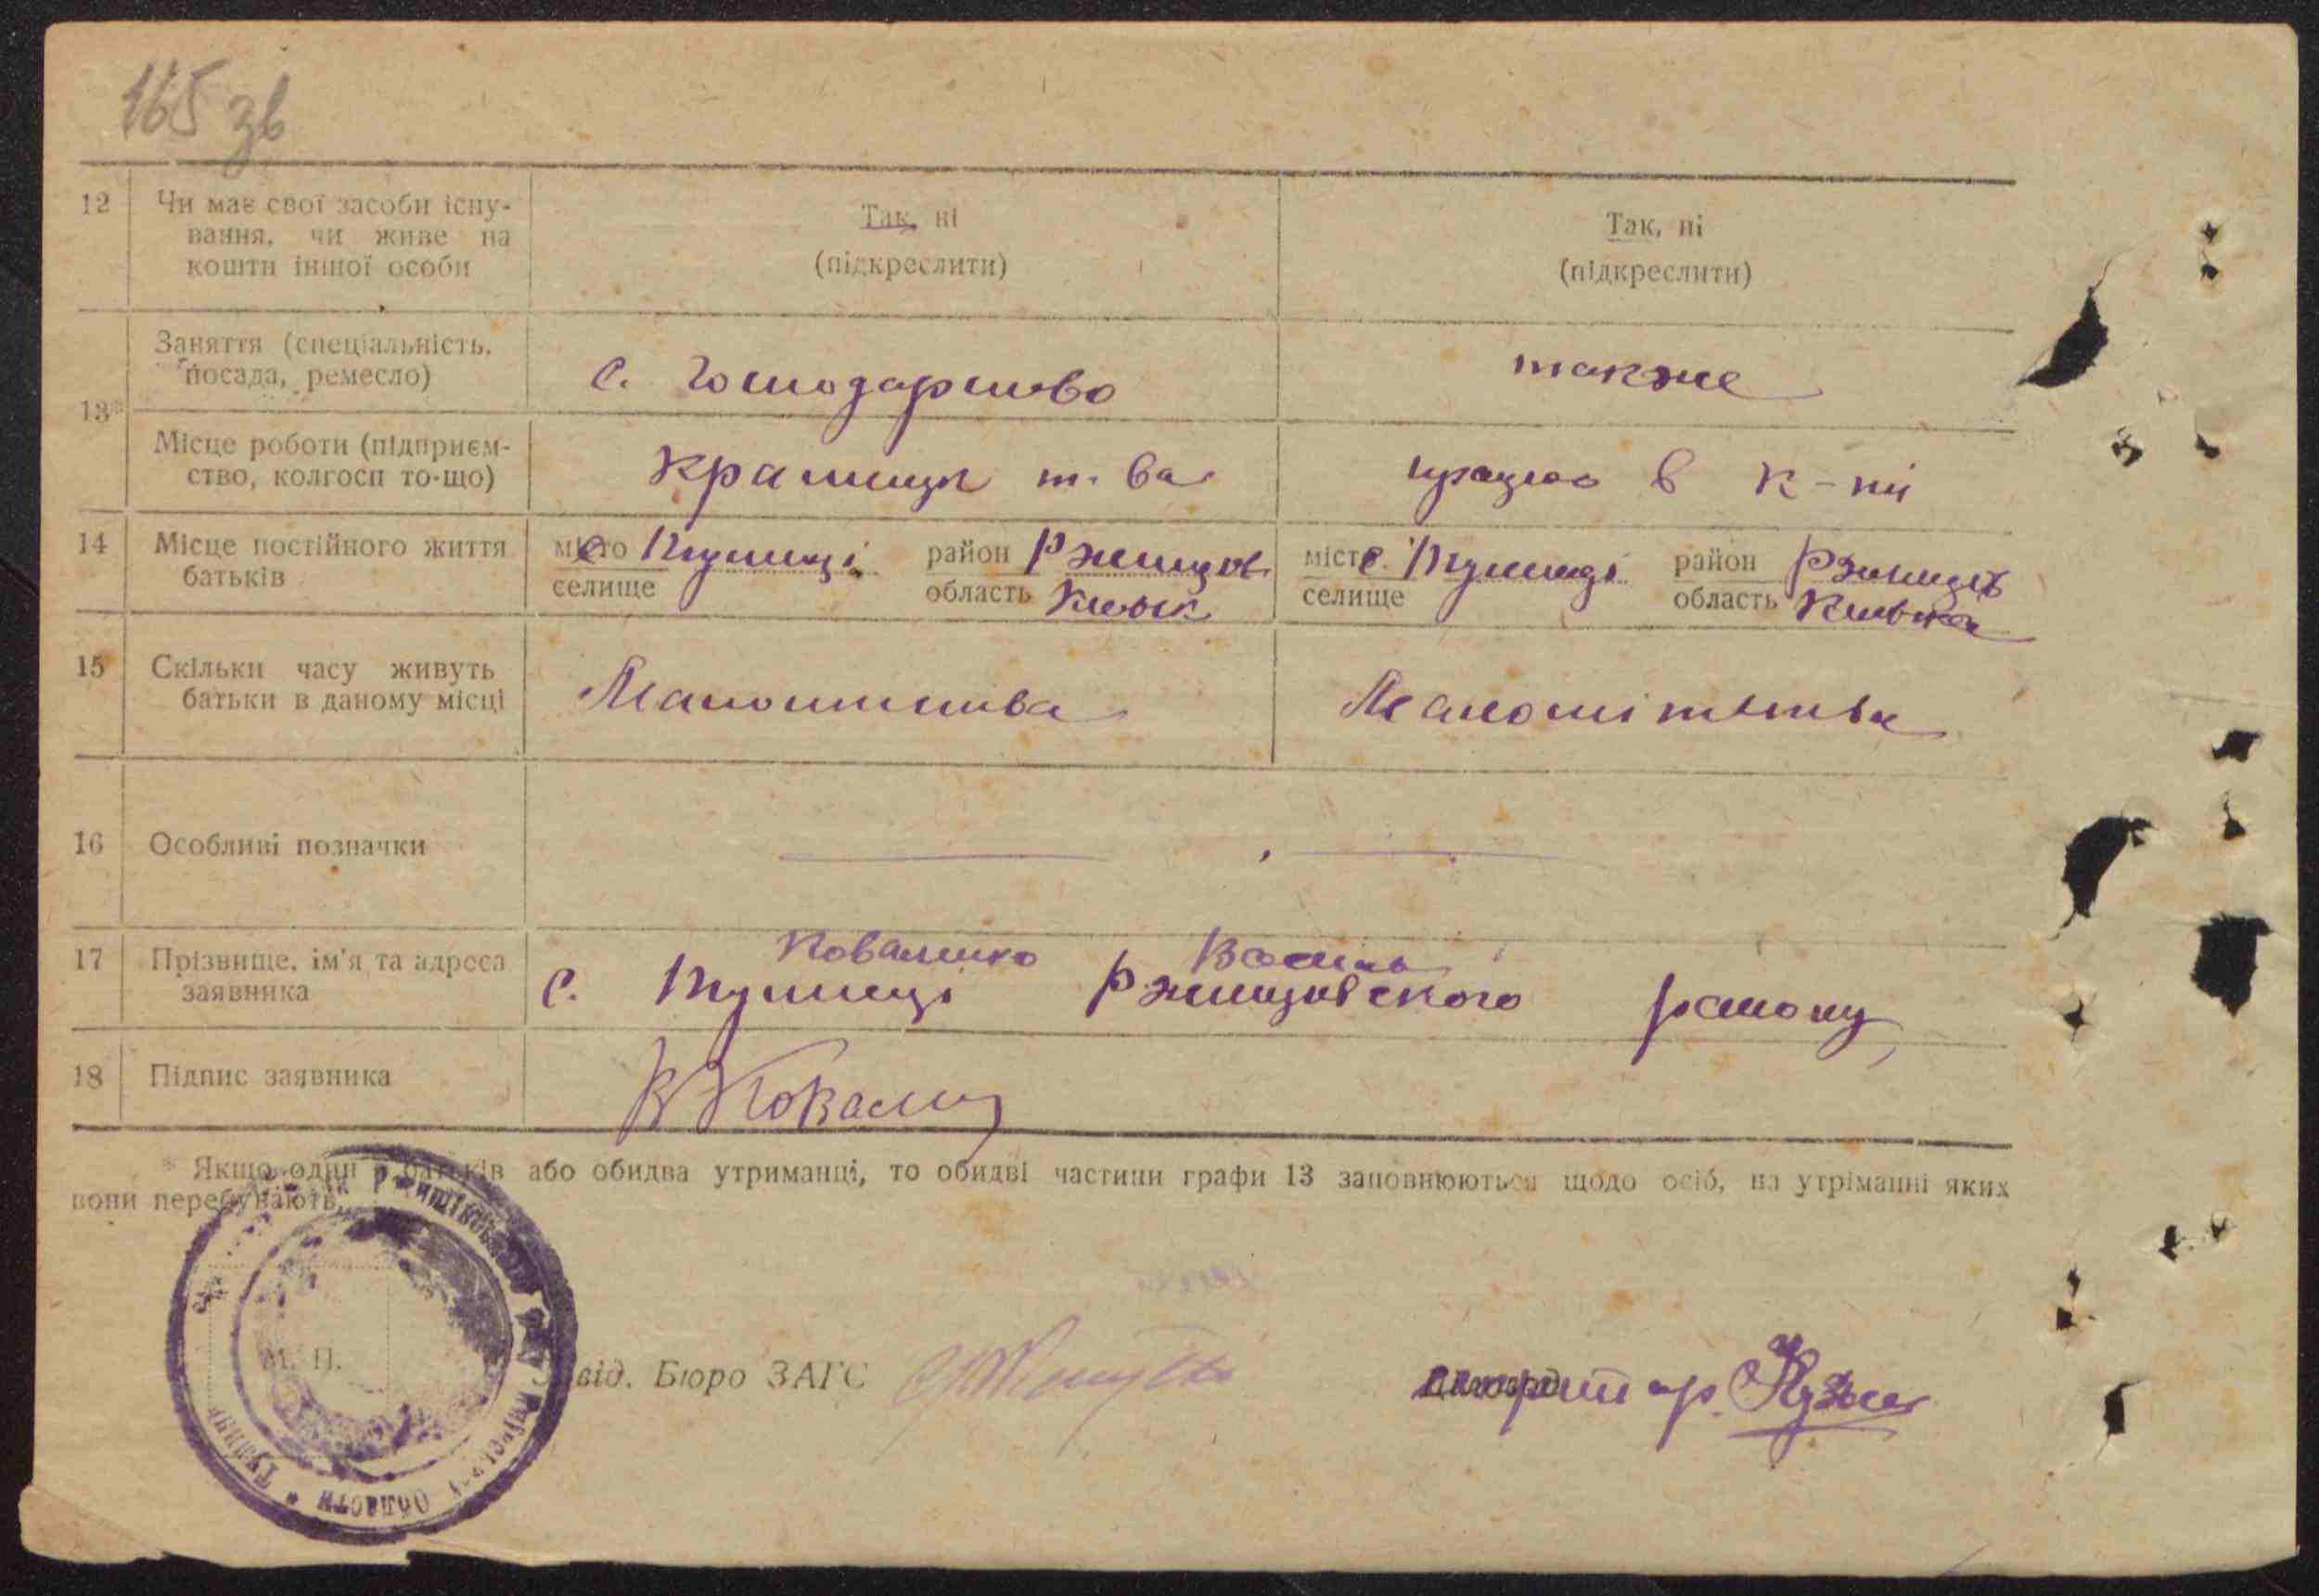 165 зв
12 Чи має свої засоби існу-
вання, чи живе на
кошти іншої особи
Так, ні
(підкреслити)
Так, ні
(підкреслити)
13*
Заняття (спеціальність,
посада, ремесло)
с. Господарство
также
Місце роботи (підприєм-
ство, колгосп то-що)
т. ва
працює в к-пі
14 Місце постійного життя
батьків
місто
селище
с Тулинці
район Ржищів
область Київськ
місто
селище
с. Тулинці
район Ржищів
область Київська
15 Скільки часу живуть
батьки в даному місці
16 Особливі позначки
17 Прізвище, ім'я та адреса
заявника
Коваленко Василь
с. Тулинці Ржищівского району
18 Підпис заявника
В Ковален
* Якщо один з батьків або обидва утриманці, то обидві частини графи 13 заповнюються щодо осіб, на утріманні яких
вони перебувають.
Ржищівського
Області * Тулинц
М. П.
Завід. Бюро ЗАГС
Діловод
секретар